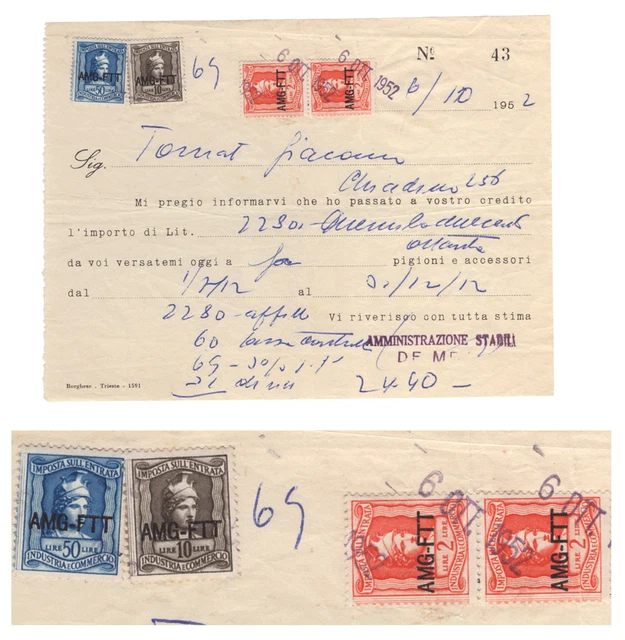 AMG-FTT
LIRE 50 LIRE
AMG-FTT
LIRE 10 LIRE
69
6 OTT. 1952
AMG-FTT
6 OTT. 1952
AMG-FTT
Nº 43
6/10 1952
Sig. Giacomo
Chiadino 256
Mi pregio informarvi che ho passato a vostro credito
l'importo di Lit. 2280.- duemiladuecento
ottanta
da voi versatemi oggi a pigioni e accessori
dal al 31/12/12
2280 - Vi riverisco con tutta stima
60 AMMINISTRAZIONE STABILI
69 - DE
31 2440 -
Borghese - Trieste - 1591
IMPOSTA SULL'ENTRATA
AMG-FTT
LIRE 50 LIRE
INDUSTRIA E COMMERCIO
IMPOSTA SULL'ENTRATA
AMG-FTT
LIRE 10 LIRE
INDUSTRIA E COMMERCIO
69
6 OTT. 1952
IMPOSTA SULL'ENTRATA
AMG-FTT
LIRE 2 LIRE
INDUSTRIA E COMMERCIO
6 OTT.
IMPOSTA SULL'ENTRATA
AMG-FTT
LIRE 2 LIRE
INDUSTRIA E COMMERCIO